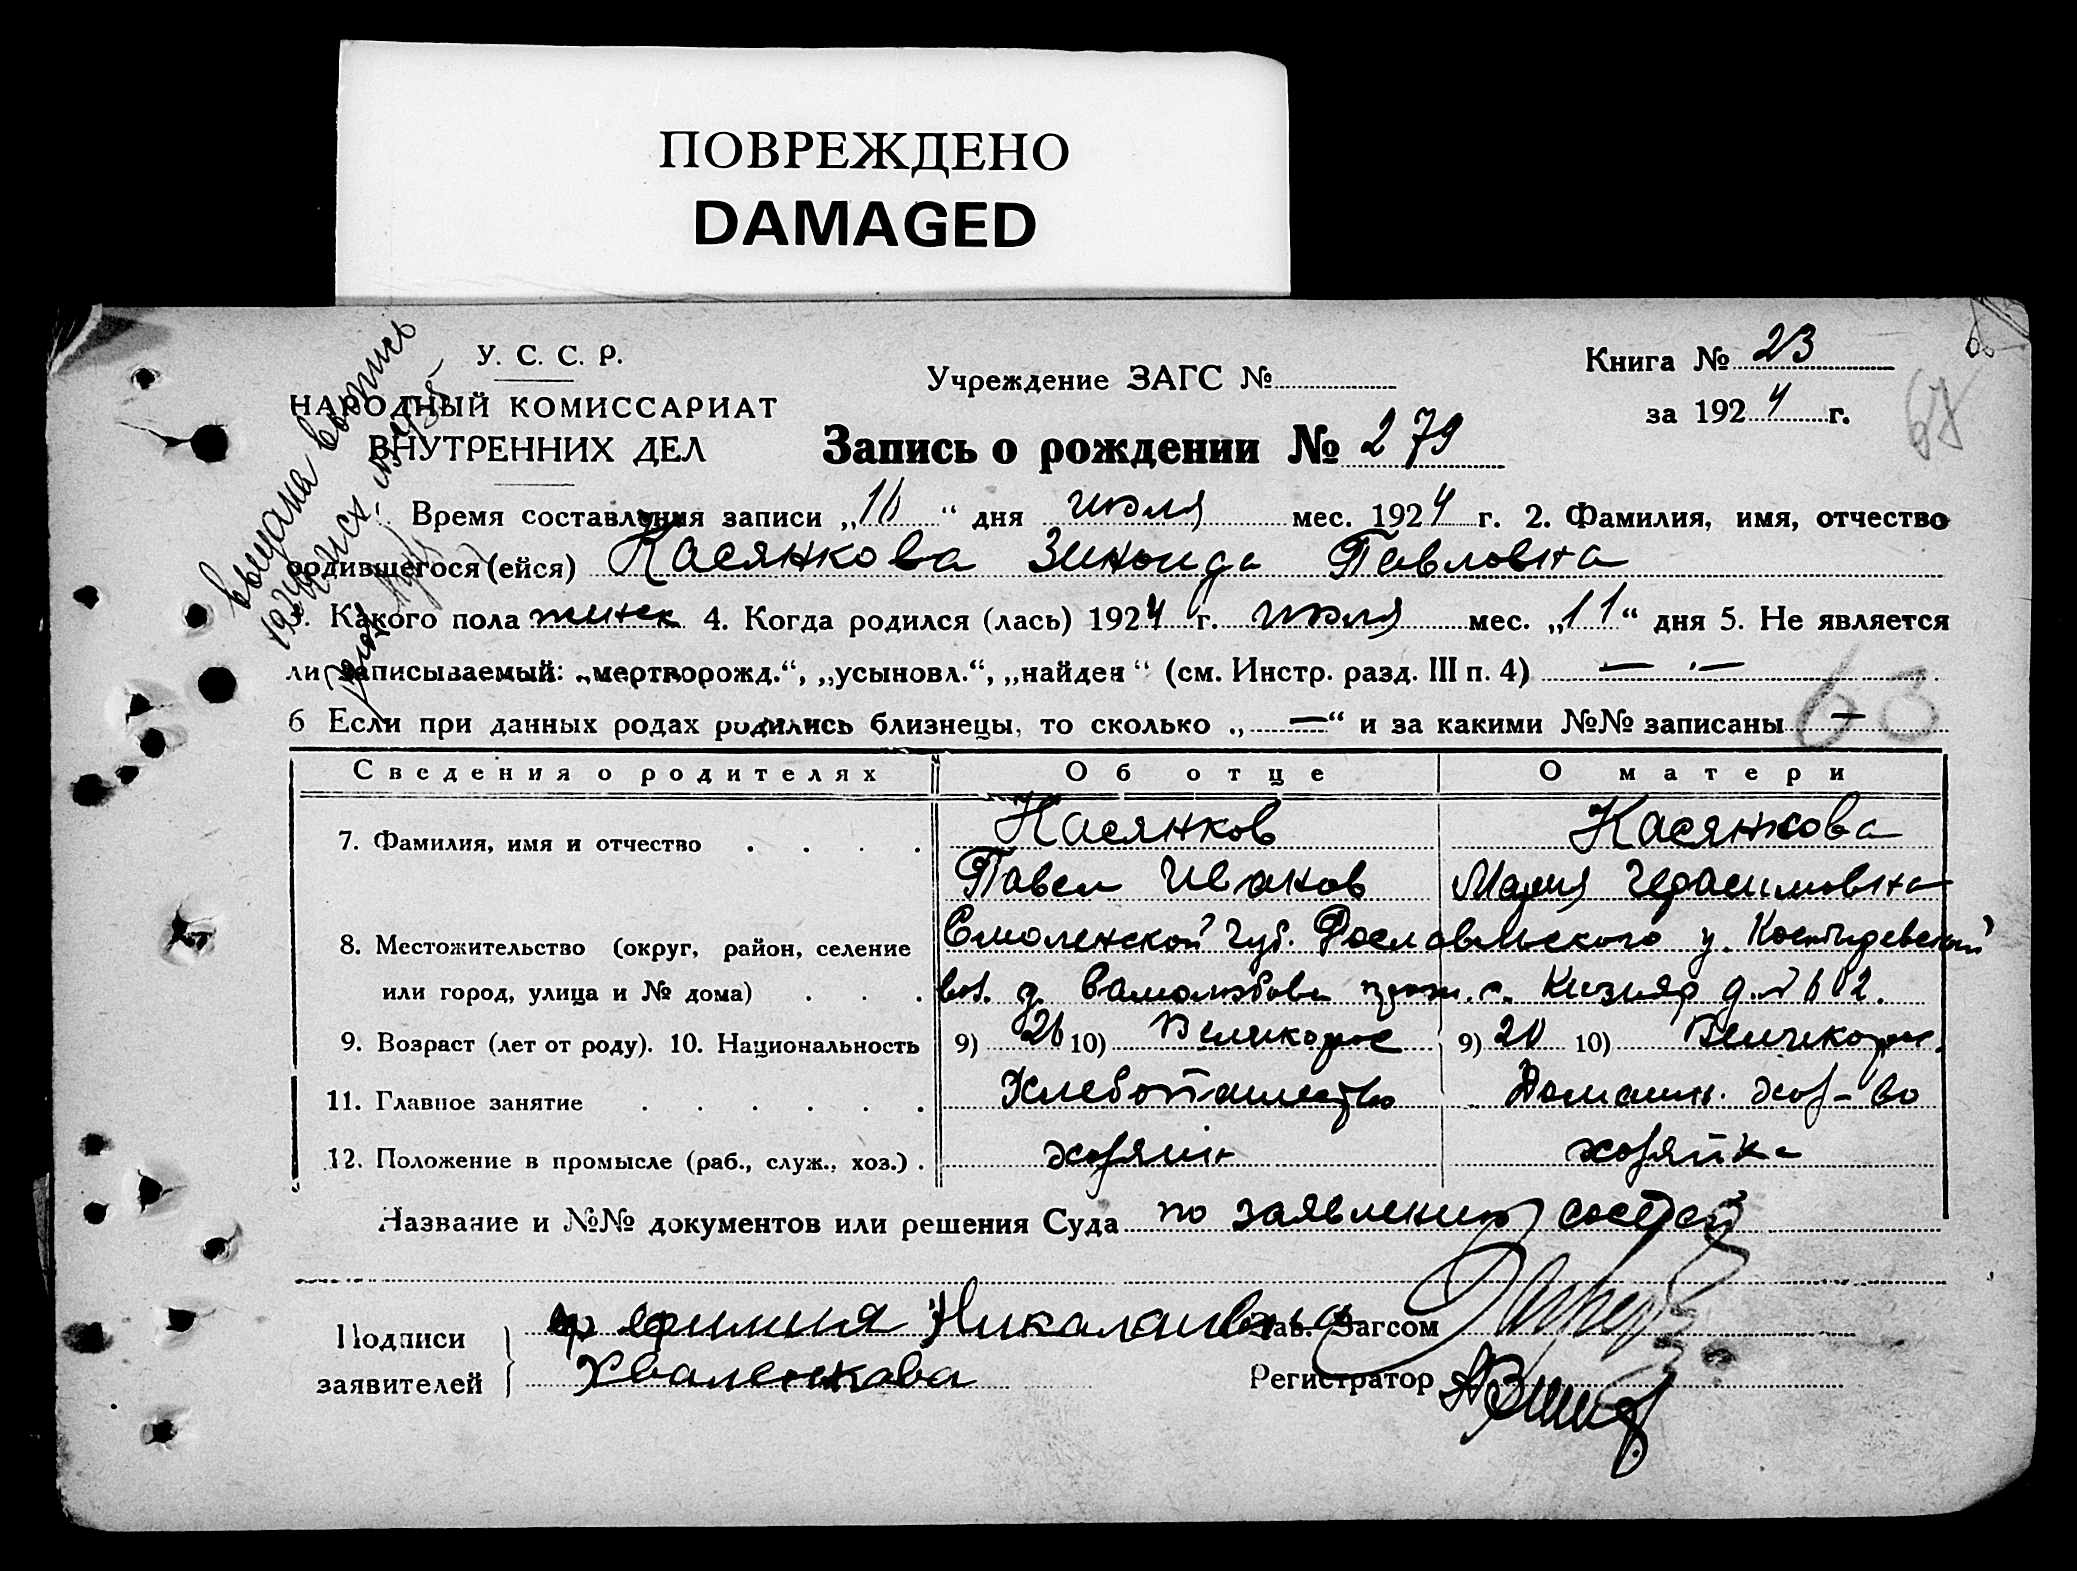 ПОВРЕЖДЕНО
DAMAGED
У. С. С. Р.
НАРОДНЫЙ КОМИССАРИАТ
ВНУТРЕННИХ ДЕЛ
Учреждение ЗАГС №
Книга № 23
за 1924 г.
67
Запись о рождении № 279
выдана выпись
Время составления записи „16“ дня июля мес. 1924 г. 2. Фамилия, имя, отчество
родившегося (ейся) Касянкова Зинаида Павловна
3. Какого пола женск 4. Когда родился (лась) 1924 г. июля мес. „11“ дня 5. Не является
ли записываемый: „мертворожд.“, „усыновл.“, „найден“ (см. Инстр. разд. III п. 4) — . —
63
6 Если при данных родах родились близнецы, то сколько „—“ и за какими №№ записаны —
Сведения о родителях Об отце О матери
7. Фамилия, имя и отчество . . . . Касянков Касянкова
Павел Иванов Мария Герасимовна
8. Местожительство (округ, район, селение Смоленской губ. Рославльского у.
или город, улица и № дома) . . . вол. д. с. Кизияр д. № 602.
9. Возраст (лет от роду). 10. Национальность 9) 26 10) Великорос 9) 20 10) Великорос.
11. Главное занятие . . . . . . Хлебопашество Домашн. хоз-во
12. Положение в промысле (раб., служ., хоз.) . хозяин хозяйка
Название и №№ документов или решения Суда по заявлению соседей
Подписи заявителей Николаивна Зав. Загсом
Хваленкова Регистратор